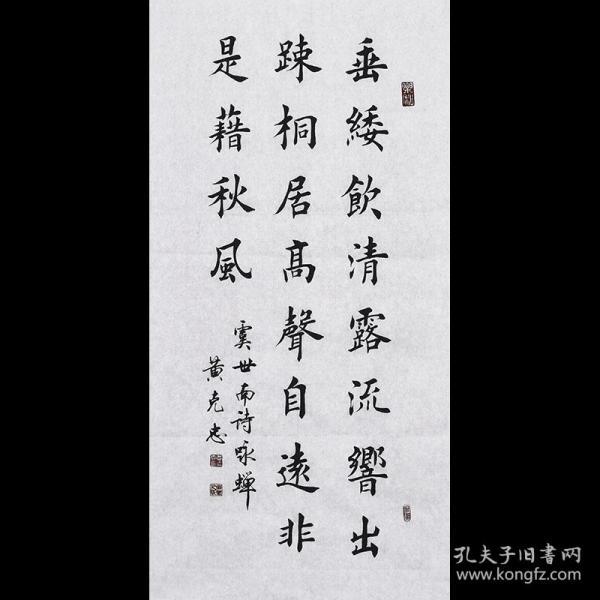 垂緌飲清露流響出
踈桐居高聲自遠非
是藉秋風
虞世南诗咏蝉
黄克忠
孔夫子旧书网
www.kongfz.com